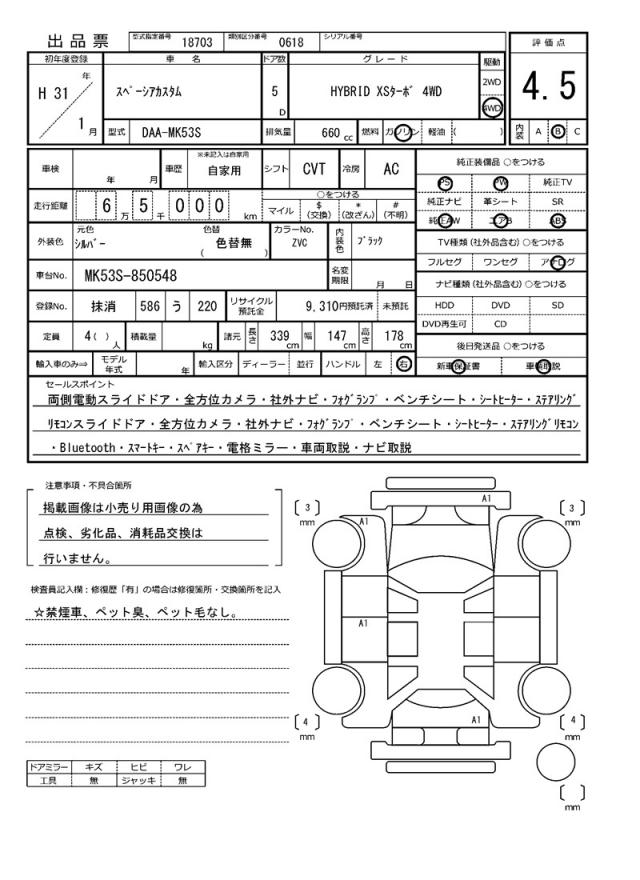 出品票 型式指定番号 18703 類別区分番号 0618 シリアル番号
初年度登録 車名 ドア数 グレード 駆動 評価点
H 31 年 1 月 スペーシアカスタム 5 D HYBRID XSターボ 4WD 2WD 4WD 4.5
型式 DAA-MK53S 排気量 660 cc 燃料 ガソリン 軽油 ( ) 内装 A B C
車検 年 月 車歴 ※未記入は自家用 自家用 シフト CVT 冷房 AC
純正装備品 ○をつける
PS PW 純正TV
純正ナビ 革シート SR
純正AW エアB ABS
走行距離 6 万 5 千 0 0 0 km
○をつける
マイル $ (交換) * (改ざん) # (不明)
外装色 元色 シルバー 色替 ( 色替無 ) カラーNo. ZVC 内装色 ブラック
TV種類 (社外品含む) ○をつける
フルセグ ワンセグ アナログ
車台No. MK53S-850548 名変期限 月 日
ナビ種類 (社外品含む) ○をつける
登録No. 抹消 586 う 220 リサイクル預託金 9,310円預託済 未預託
HDD DVD SD
DVD再生可 CD
定員 4( ) 人 積載量 kg 諸元 長さ 339 cm 幅 147 cm 高さ 178 cm
後日発送品 ○をつける
輸入車のみ⇒ モデル年式 年 輸入区分 ディーラー ・ 並行 ハンドル 左 ・ 右
新車保証書 車輌取説
セールスポイント
両側電動スライドドア・全方位カメラ・社外ナビ・フォグランプ・ベンチシート・シートヒーター・ステアリング
リモコンスライドドア・全方位カメラ・社外ナビ・フォグランプ・ベンチシート・シートヒーター・ステアリングリモコン
・Bluetooth・スマートキー・スペアキー・電格ミラー・車両取説・ナビ取説
注意事項・不具合箇所
掲載画像は小売り用画像の為
点検、劣化品、消耗品交換は
行いません。
検査員記入欄：修復歴「有」の場合は修復箇所・交換箇所を記入
☆禁煙車、ペット臭、ペット毛なし。
A1
3 mm
A1
3 mm
A1
A1
4 mm
4 mm
mm
ドアミラー キズ ヒビ ワレ
工具 無 ジャッキ 無